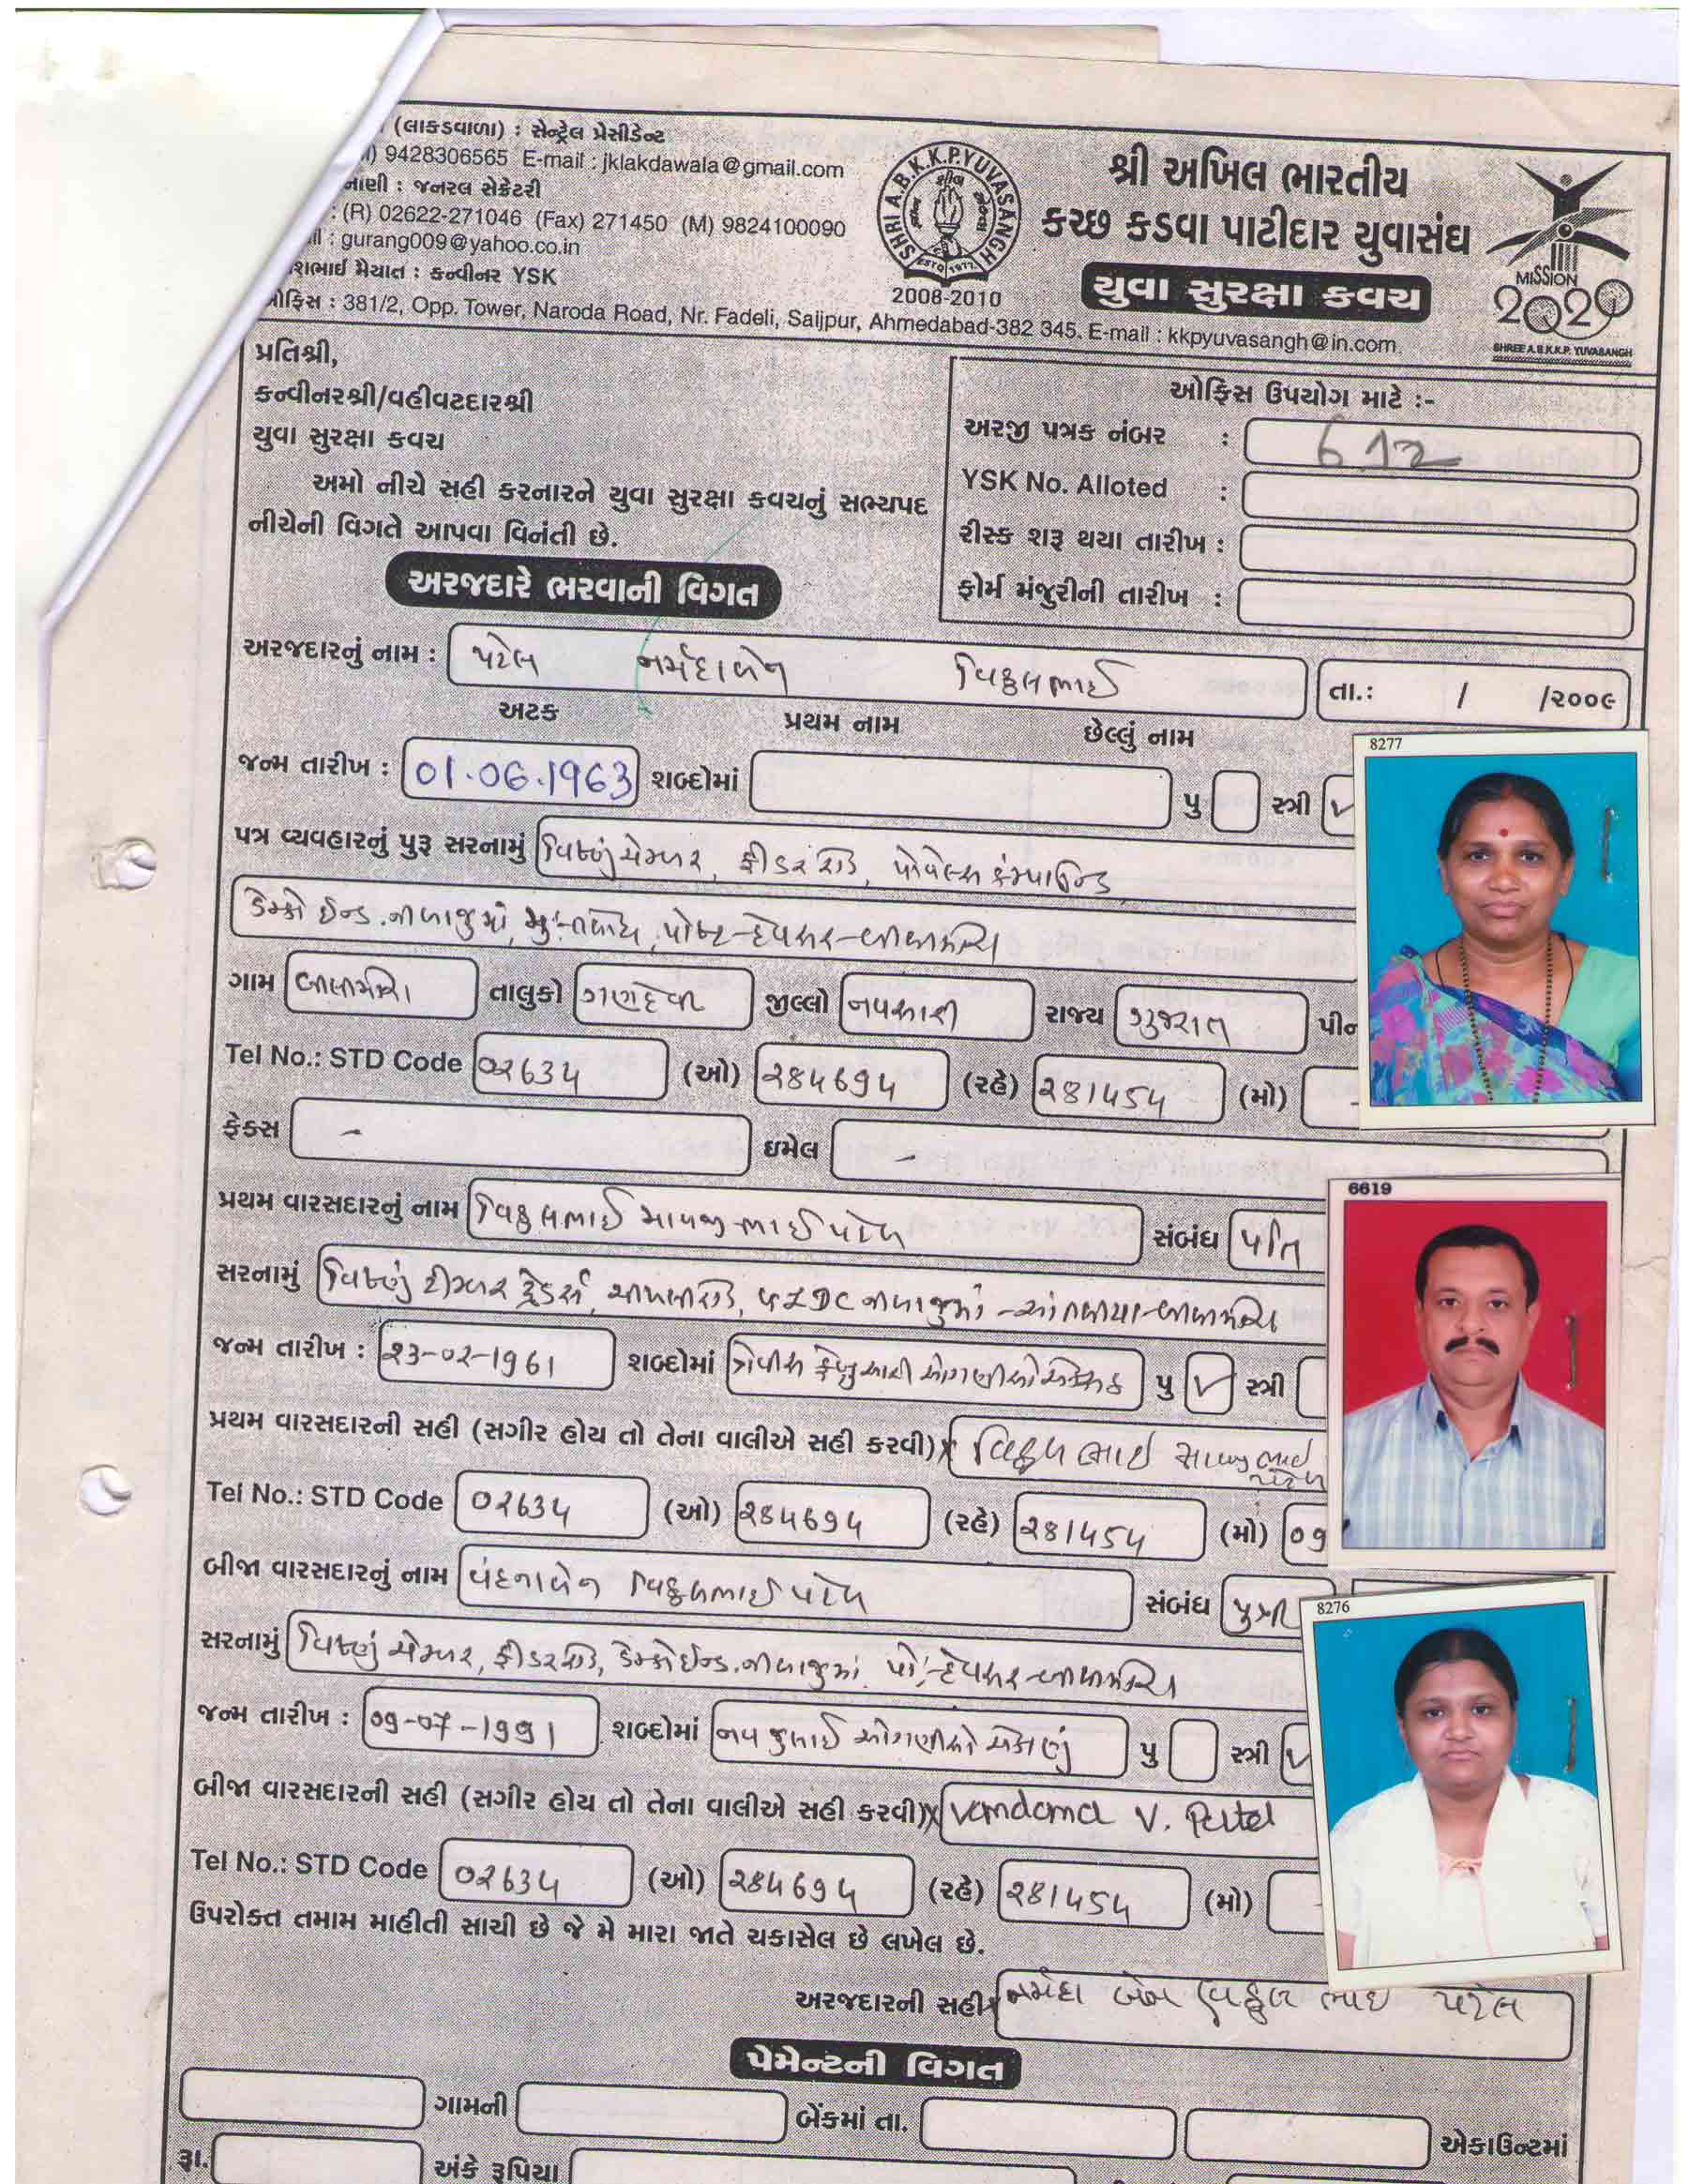 (લાકડવાળા) : સેન્ટ્રલ પ્રેસીડેન્ટ
9428306565 E-mail : jklakdawala@gmail.com
: જનરલ સેક્રેટરી
: (R) 02622-271046 (Fax) 271450 (M) 9824100090
: gurang009@yahoo.co.in
મૈયાત : કન્વીનર YSK
: 381/2, Opp. Tower, Naroda Road, Nr. Fadeli, Saijpur, Ahmedabad-382 345. E-mail : kkpyuvasangh@in.com.
SHRI A.B.K.K.P. YUVASANGH
ESTD 1977
2008-2010
શ્રી અખિલ ભારતીય
કચ્છ કડવા પાટીદાર યુવાસંઘ
યુવા સુરક્ષા કવચ
MISSION
2020
SHREE A.B.K.K.P. YUVASANGH
પ્રતિશ્રી,
કન્વીનરશ્રી/વહીવટદારશ્રી
યુવા સુરક્ષા કવચ
અમો નીચે સહી કરનારને યુવા સુરક્ષા કવચનું સભ્યપદ
નીચેની વિગતે આપવા વિનંતી છે.
ઓફિસ ઉપયોગ માટે :-
અરજી પત્રક નંબર : 612
YSK No. Alloted :
રીસ્ક શરૂ થયા તારીખ :
ફોર્મ મંજુરીની તારીખ :
અરજદારે ભરવાની વિગત
અરજદારનું નામ : પટેલ નર્મદાબેન વિઠ્ઠલભાઈ તા.: / /૨૦૦૯
અટક પ્રથમ નામ છેલ્લું નામ
8277
જન્મ તારીખ : 01.06.1963 શબ્દોમાં પુ સ્ત્રી ✓
પત્ર વ્યવહારનું પુરૂ સરનામું વિષ્ણું ચેમ્બર, ફીડર રોડ,
ગામ બીલીમોરા તાલુકો ગણદેવી જીલ્લો નવસારી રાજ્ય ગુજરાત પીન
Tel No.: STD Code 02634 (ઓ) ૨84694 (રહે) ૨81454 (મો) -
ફેક્સ - ઇમેલ -
6619
પ્રથમ વારસદારનું નામ વિઠ્ઠલભાઈ માવજીભાઈ પટેલ સંબંધ પતિ
સરનામું વિષ્ણું ટીમ્બર ટ્રેડર્સ,
જન્મ તારીખ : ૨3-02-1961 શબ્દોમાં ત્રેવીસ ફેબ્રુઆરી ઓગણીસો એકસઠ પુ ✓ સ્ત્રી
પ્રથમ વારસદારની સહી (સગીર હોય તો તેના વાલીએ સહી કરવી) x વિઠ્ઠલ ભાઈ માવજીભાઈ પટેલ
Tel No.: STD Code 02634 (ઓ) ૨84694 (રહે) ૨81454 (મો) 09
બીજા વારસદારનું નામ વંદનાબેન વિઠ્ઠલભાઈ પટેલ સંબંધ પુત્રી
8276
સરનામું વિષ્ણું ચેમ્બર, ફીડર રોડ,
જન્મ તારીખ : 09-07-1991 શબ્દોમાં નવ જુલાઈ ઓગણીસો એકાણું પુ સ્ત્રી ✓
બીજા વારસદારની સહી (સગીર હોય તો તેના વાલીએ સહી કરવી) x Vandana V. Patel
Tel No.: STD Code 02634 (ઓ) ૨84694 (રહે) ૨81454 (મો) -
ઉપરોક્ત તમામ માહીતી સાચી છે જે મે મારા જાતે ચકાસેલ છે લખેલ છે.
અરજદારની સહી x નર્મદા બેન વિઠ્ઠલ ભાઈ પટેલ
પેમેન્ટની વિગત
ગામની બેંકમાં તા. એકાઉન્ટમાં
રૂા. અંકે રૂપિયા